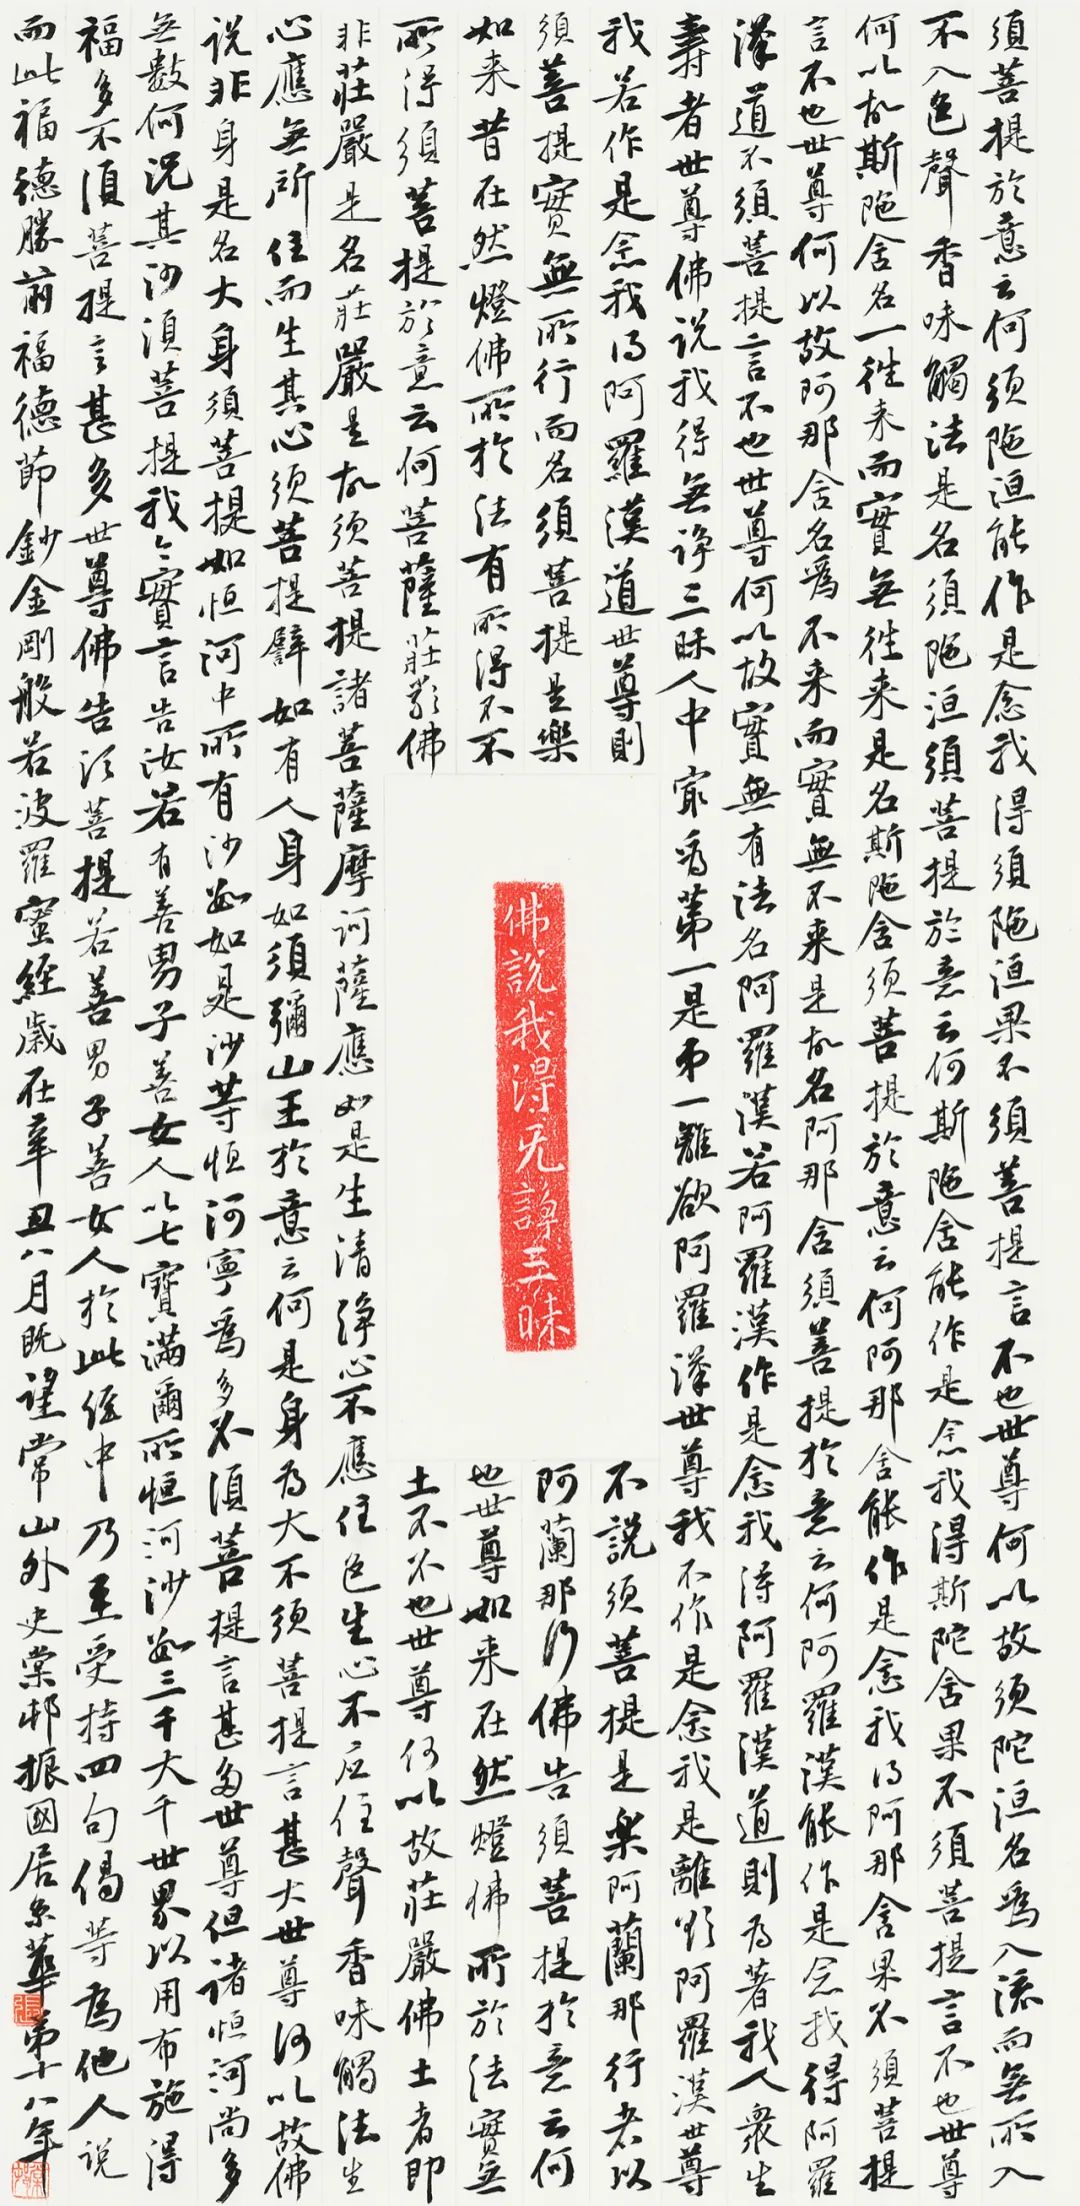 須菩提於意云何須陁洹能作是念我得須陁洹果不須菩提言不也世尊何以故須陀洹名為入流而無所入
不入色聲香味觸法是名須陁洹須菩提於意云何斯陁含能作是念我得斯陀含果不須菩提言不也世尊
何以故斯陁含名一徃来而實無徃来是名斯陁含須菩提於意云何阿那含能作是念我得阿那含果不須菩提
言不也世尊何以故阿那含名為不来而實無不来是故名阿那含須菩提於意云何阿羅漢能作是念我得阿羅
漢道不須菩提言不也世尊何以故實無有法名阿羅漢若阿羅漢作是念我得阿羅漢道則為著我人衆生
壽者世尊佛説我得無諍三昧人中冣為第一是第一離欲阿羅漢世尊我不作是念我是離欲阿羅漢世尊
我若作是念我得阿羅漢道世尊則不說須菩提是樂阿蘭那行者以
須菩提實無所行而名須菩提是樂阿蘭那行佛告須菩提於意云何
如来昔在然燈佛所於法有所得不不也世尊如来在然燈佛所於法實無
所得須菩提於意云何菩薩莊嚴佛土不不也世尊何以故莊嚴佛土者即
非莊嚴是名莊嚴是故須菩提諸菩薩摩訶薩應如是生清淨心不應住色生心不應住聲香味觸法生
心應無所住而生其心須菩提譬如有人身如須彌山王於意云何是身為大不須菩提言甚大世尊何以故佛
説非身是名大身須菩提如恒河中所有沙數如是沙等恒河寧為多不須菩提言甚多世尊但諸恒河尚多
無數何況其沙須菩提我今實言告汝若有善男子善女人以七寶滿爾所恒河沙數三千大千世界以用布施得
福多不須菩提言甚多世尊佛告須菩提若善男子善女人於此經中乃至受持四句偈等為他人説
而此福德勝前福德節鈔金剛般若波羅蜜經歲在辛丑八月既望常山外史棠邨振國居京華第十八年
佛說我得无諍三昧